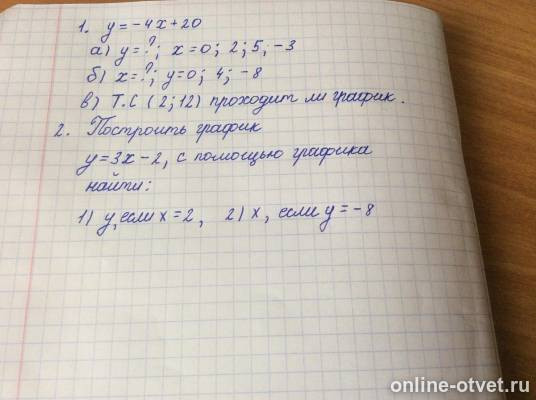 1. y = -4x+20
а) y=?; x=0; 2; 5, -3
б) x=?; y=0; 4; -8
в) Т.С (2; 12) проходит ли график.
2. Построить график
y=3x-2, с помощью графика
найти:
1) y, если x=2, 2) x, если y=-8
online-otvet.ru